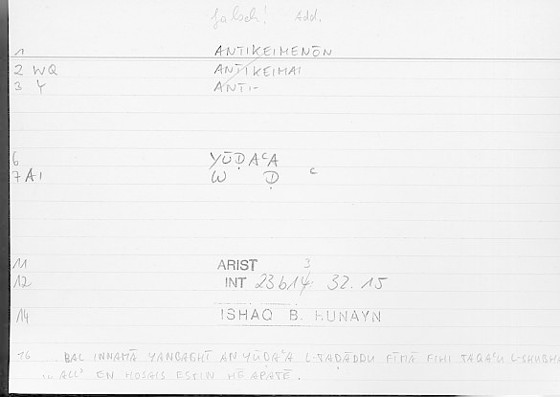 falsch! Add.
1 ANTIKEIMENŌN
2 WQ ANTIKEIMAI
3 Y ANTI-
6 YŪḌAᶜA
7 AI W Ḍ ᶜ
11 ARIST 3
12 INT 23b14 32.15
14 ISHAQ B. HUNAYN
16 BAL INNAMĀ YANBAGHĪ AN YŪḌAᶜA L-TAḌĀDDU FĪMĀ FIHI TAQAᶜU L-SHUBHA
ALL' EN HOSAIS ESTIN HĒ APATĒ.